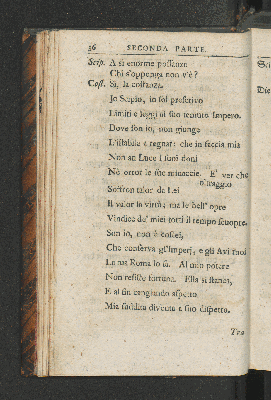 36 SECONDA PARTE.
Scip. A sì enorme possanza
Chi s'opponga non v'è?
Cost. Sì, la costanza.
Io Scipio, io sol prescrivo
Limiti e leggi al suo temuto Impero.
Dove son io, non giunge
L'istabile a regnar: che in faccia mia
Non an Luce i suoi doni
Nè orror le sue minaccie. E' ver che oltraggio
Soffron talor da Lei
Il valor la virtù; ma le bell' opre
Vindice de' miei torti il tempo scuopre.
Son io, non è costei,
Che conserva gl'Imperj, e gli Avi tuoi
La tua Roma lo sa. Al mio potere
Non resiste fortuna. Ella si stanca,
E al fin cangiando aspetto
Mia suddita diventa a suo dispetto.
Tra
Sci
Die